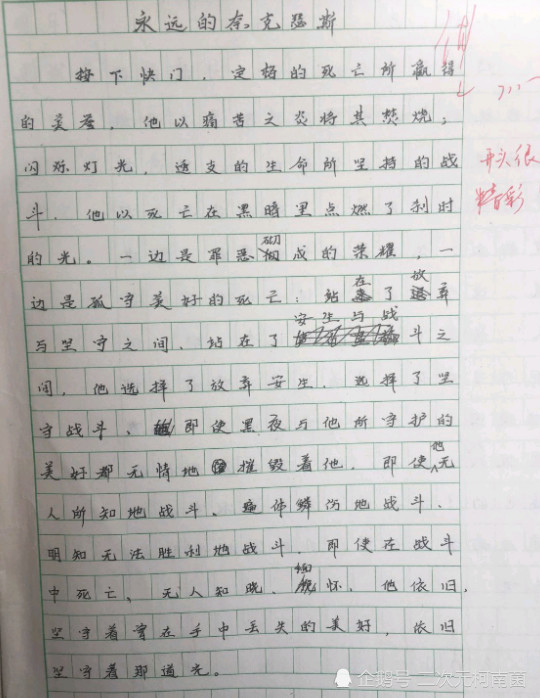 永远的奈克瑟斯
按下快门，定格的死亡所赢得
的美誉，他以痛苦之炎将其焚烧；
闪烁灯光，透支的生命所坚持的战
斗，他以死亡在黑暗里点燃了刹时
的光。一边是罪恶砌成的荣耀，一
边是孤守美好的死亡；站在了放弃
与坚守之间，站在了安生与战斗之
间，他选择了放弃安生，选择了坚
守战斗、即使黑夜与他所守护的
美好都无情地摧毁着他，即使他无
人所知地战斗、遍体鳞伤地战斗、
明知无法胜利地战斗，即使在战斗
中死亡、无人知晓、怀，他依旧，
坚守着曾在手中丢失的美好，依旧
坚守着那道光。
开头很
精彩
企鹅号 二次元柯茧茧